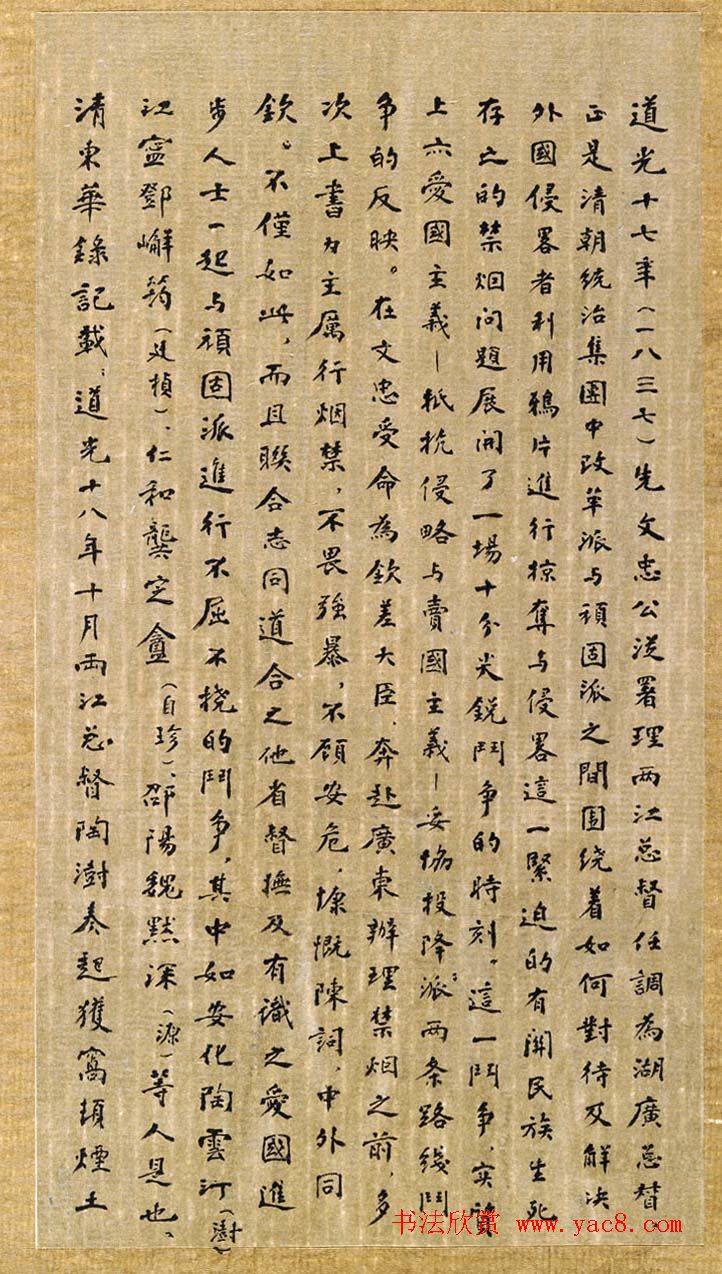 道光十七年(一八三七)先文忠公从署理两江总督任調為湖廣总督,
正是清朝統治集團中改革派与頑固派之間围绕着如何對待及解决
外國侵畧者利用鴉片進行掠奪与侵畧這一緊迫的有關民族生死
存亡的禁烟问題展開了一場十分尖銳鬥争的時刻。這一鬥争,实質
上亦愛國主義—抵抗侵略与賣國主義—妥協投降派;两条路綫鬥
争的反映。在文忠受命為欽差大臣、奔赴廣東辦理禁烟之前,多
次上書力主厲行烟禁,不畏強暴,不顾安危,慷慨陳詞,中外同
欽。不僅如此,而且联合志同道合之他省督撫及有識之愛國進
步人士一起与頑固派進行不屈不撓的鬥争,其中如安化陶雲汀(澍)
江寧鄧嶰筠(廷楨)、仁和龔定盦(自珍)、邵陽魏默深(源)等人是也、
清東華錄記載:道光十八年十月両江总督陶澍奏起獲窩頓煙土
书法欣赏 www.yac8.com